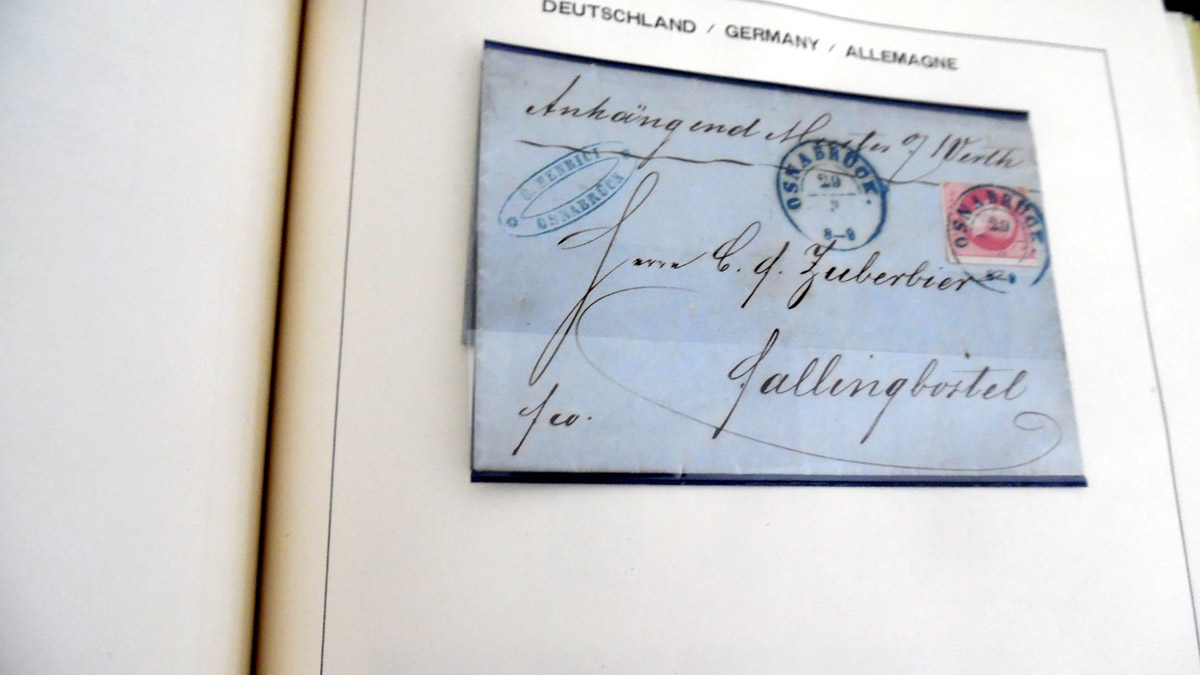 DEUTSCHLAND / GERMANY / ALLEMAGNE
Anhängend Muster o/ Werth
OSNABRÜCK
OSNABRÜCK.
29
9
8–9
OSNABRÜCK.
29
8-9
Herrn C. J. Zuberbier
Fallingbostel
fco.